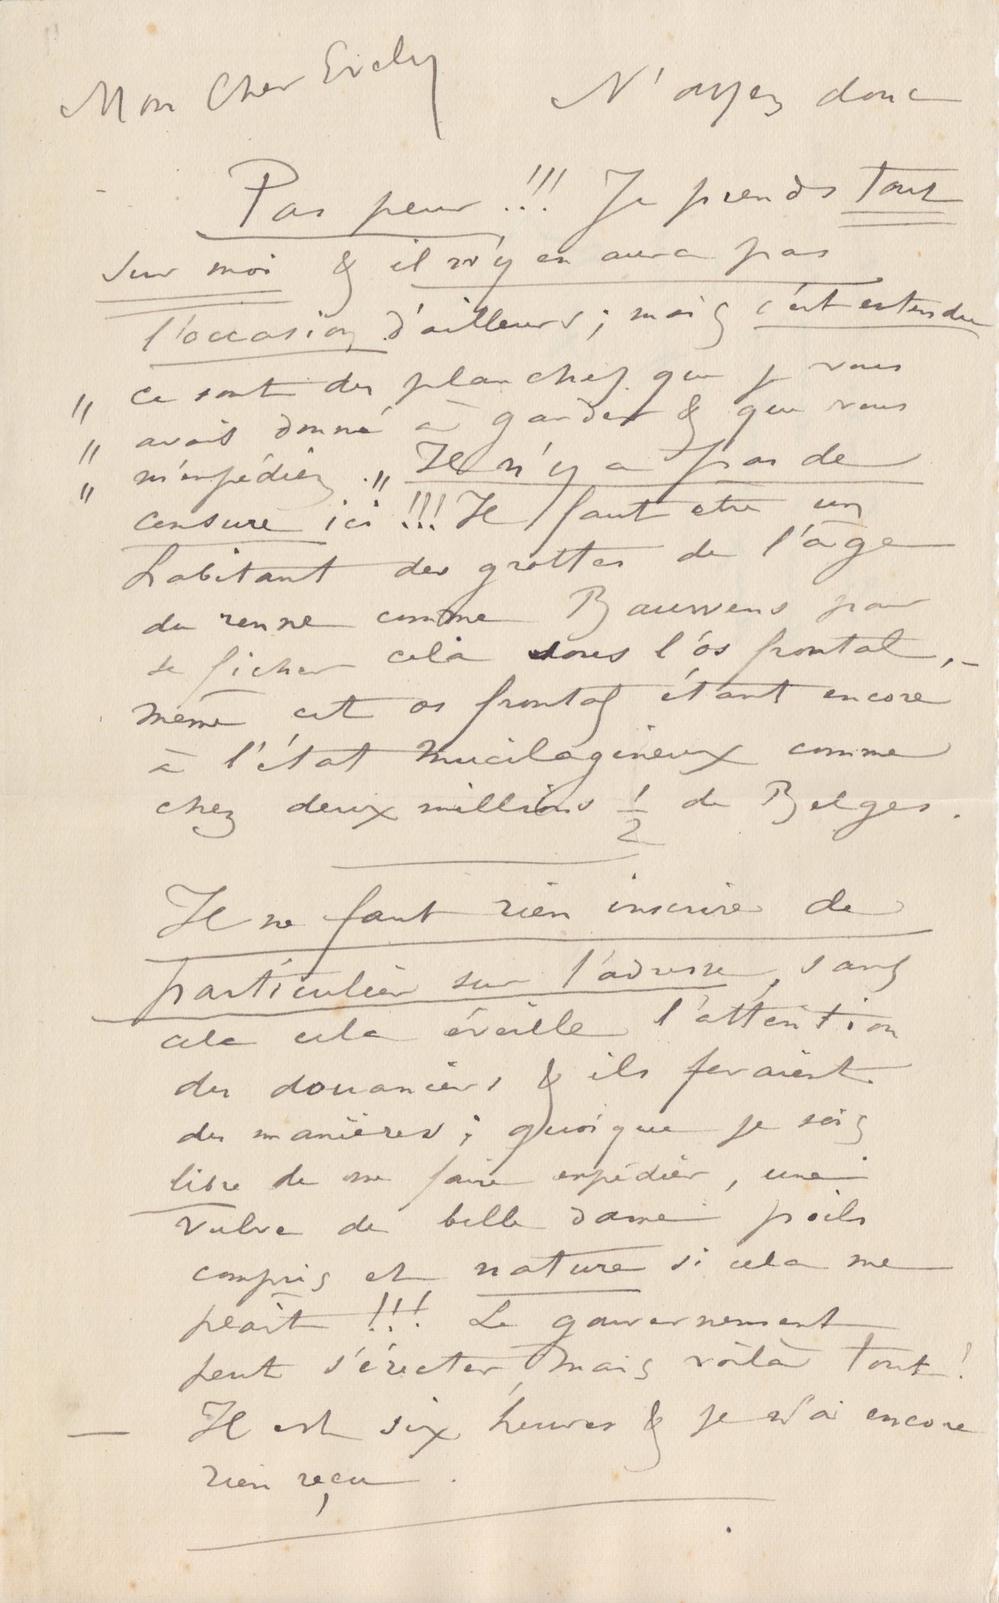 Mon Cher Evely N'ayez donc
Pas peur !!! Je prends tout
sur moi & il n'y en aura pas
l'occasion d'ailleurs ; mais c'est entendu
„ ce sont des planches que je vous
„ avais donné à garder & que vous
„ m'expédiez „ Il n'y a pas de
censure ici !!! Il faut etre un
habitant des grottes de l'âge
du renne comme Bauwens pour
se ficher celà sous l'os frontal, –
même cet os frontal étant encore
à l'état mucilagineux comme
chez deux millions ½ de Belges.
Il ne faut rien inscrire de
particulier sur l'adresse, sans
cela cela éveille l'attention
des douaniers & ils feraient
des manières ; quoique je sois
libre de me faire expédier, une
vulve de belle dame poils
compris et nature si cela me
plaît !!! Le gouvernement
peut s'érecter, mais voilà tout !
— Il est six heures & je n'ai encore
rien reçu .